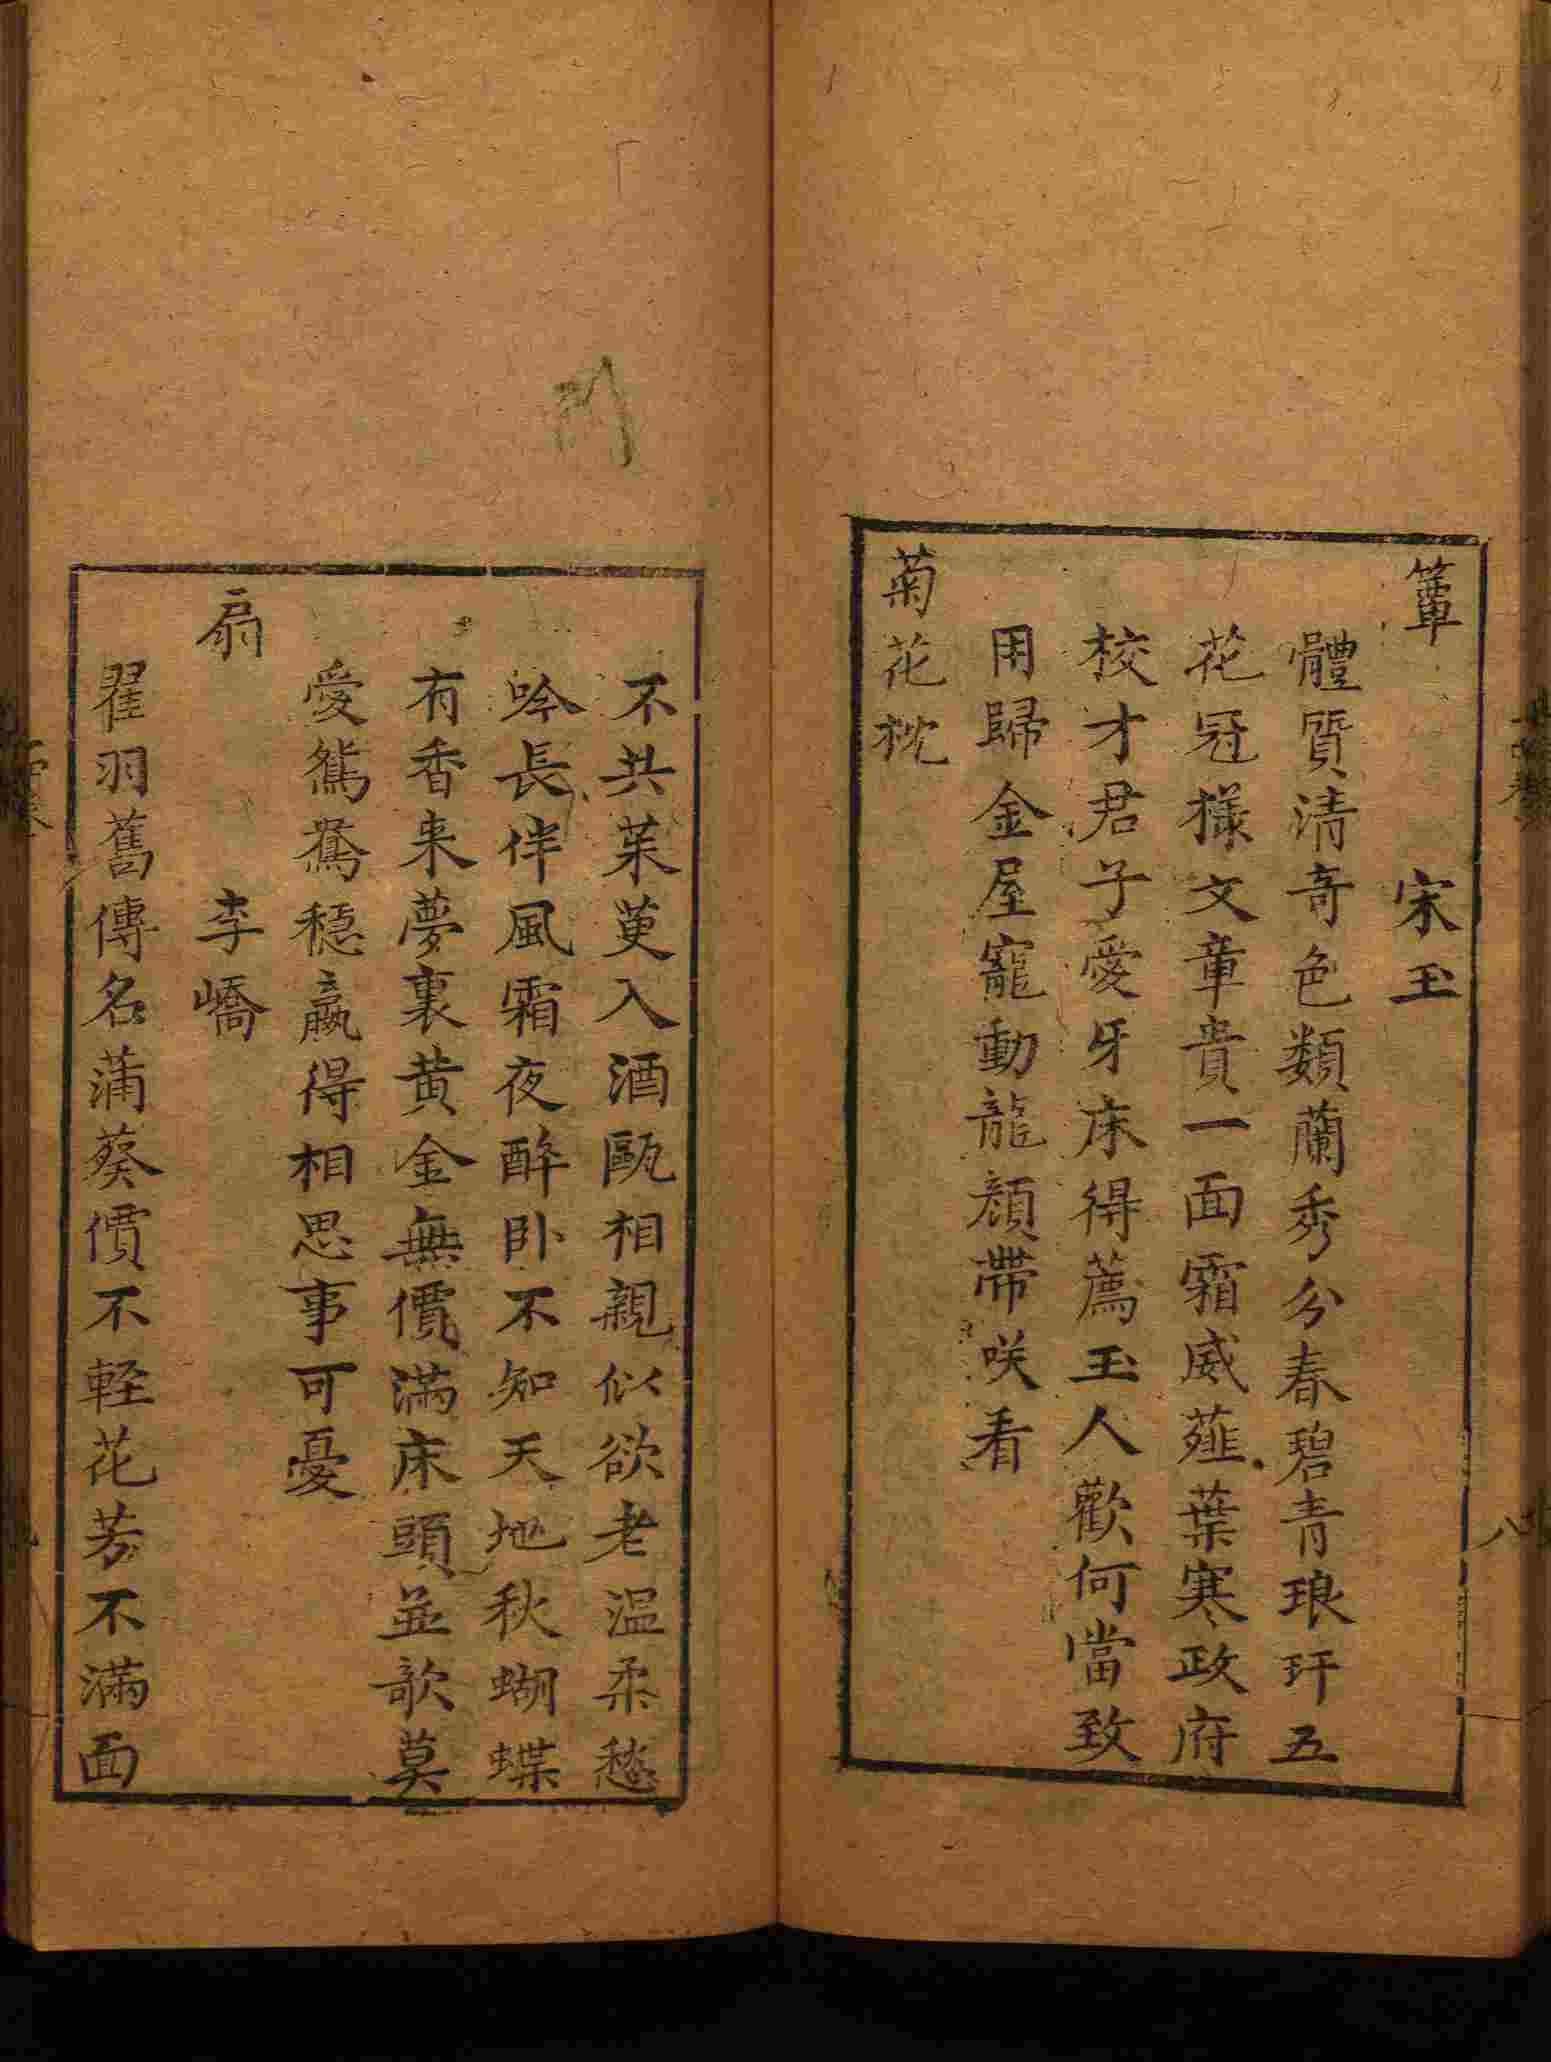 簟
宋玉
體質清奇色類蘭秀分春碧青琅玕五
花冠㨾文章貴一面霜威薤葉寒政府
校才君子愛牙床得薦玉人歡何當致
用歸金屋寵動龍顔帶咲看
菊花枕
不共茱萸入酒甌相親似欲老温柔愁
吟長伴風霜夜醉卧不知天地秋蝴蝶
有香来夢裏黄金無價滿床頭並歌莫
愛鴛鴦穩贏得相思事可憂
扇
李嶠
翟羽舊傳名蒲葵價不輕花芳不滿面
八